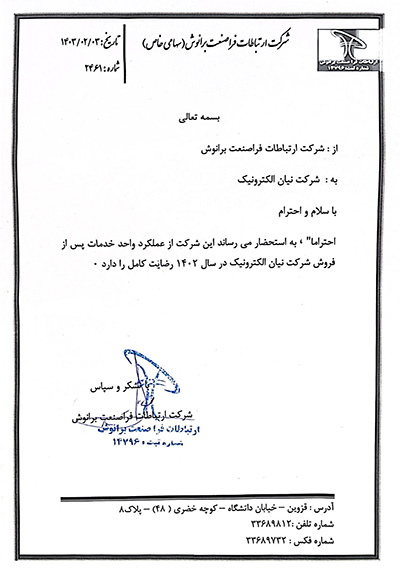 شرکت ارتباطات فراصنعت برانوش (سهامی خاص)
تاریخ: ۱۴۰۳/۰۲/۰۳
شماره: ۲۴۶۱
بسمه تعالی
از : شرکت ارتباطات فراصنعت برانوش
به : شرکت نیان الکترونیک
با سلام و احترام
احتراما" ، به استحضار می رساند این شرکت از عملکرد واحد خدمات پس از
فروش شرکت نیان الکترونیک در سال ۱۴۰۲ رضایت کامل را دارد ۰
با تشکر و سپاس
شرکت ارتباطات فراصنعت برانوش
ارتباطات فراصنعت برانوش
شماره ثبت ۱۴۷۹۶
آدرس : قزوین – خیابان دانشگاه – کوچه خضری ( ۴۸) – پلاک۸
شماره تلفن :۳۳۶۸۹۸۱۲
شماره فکس : ۳۳۶۸۹۷۳۲